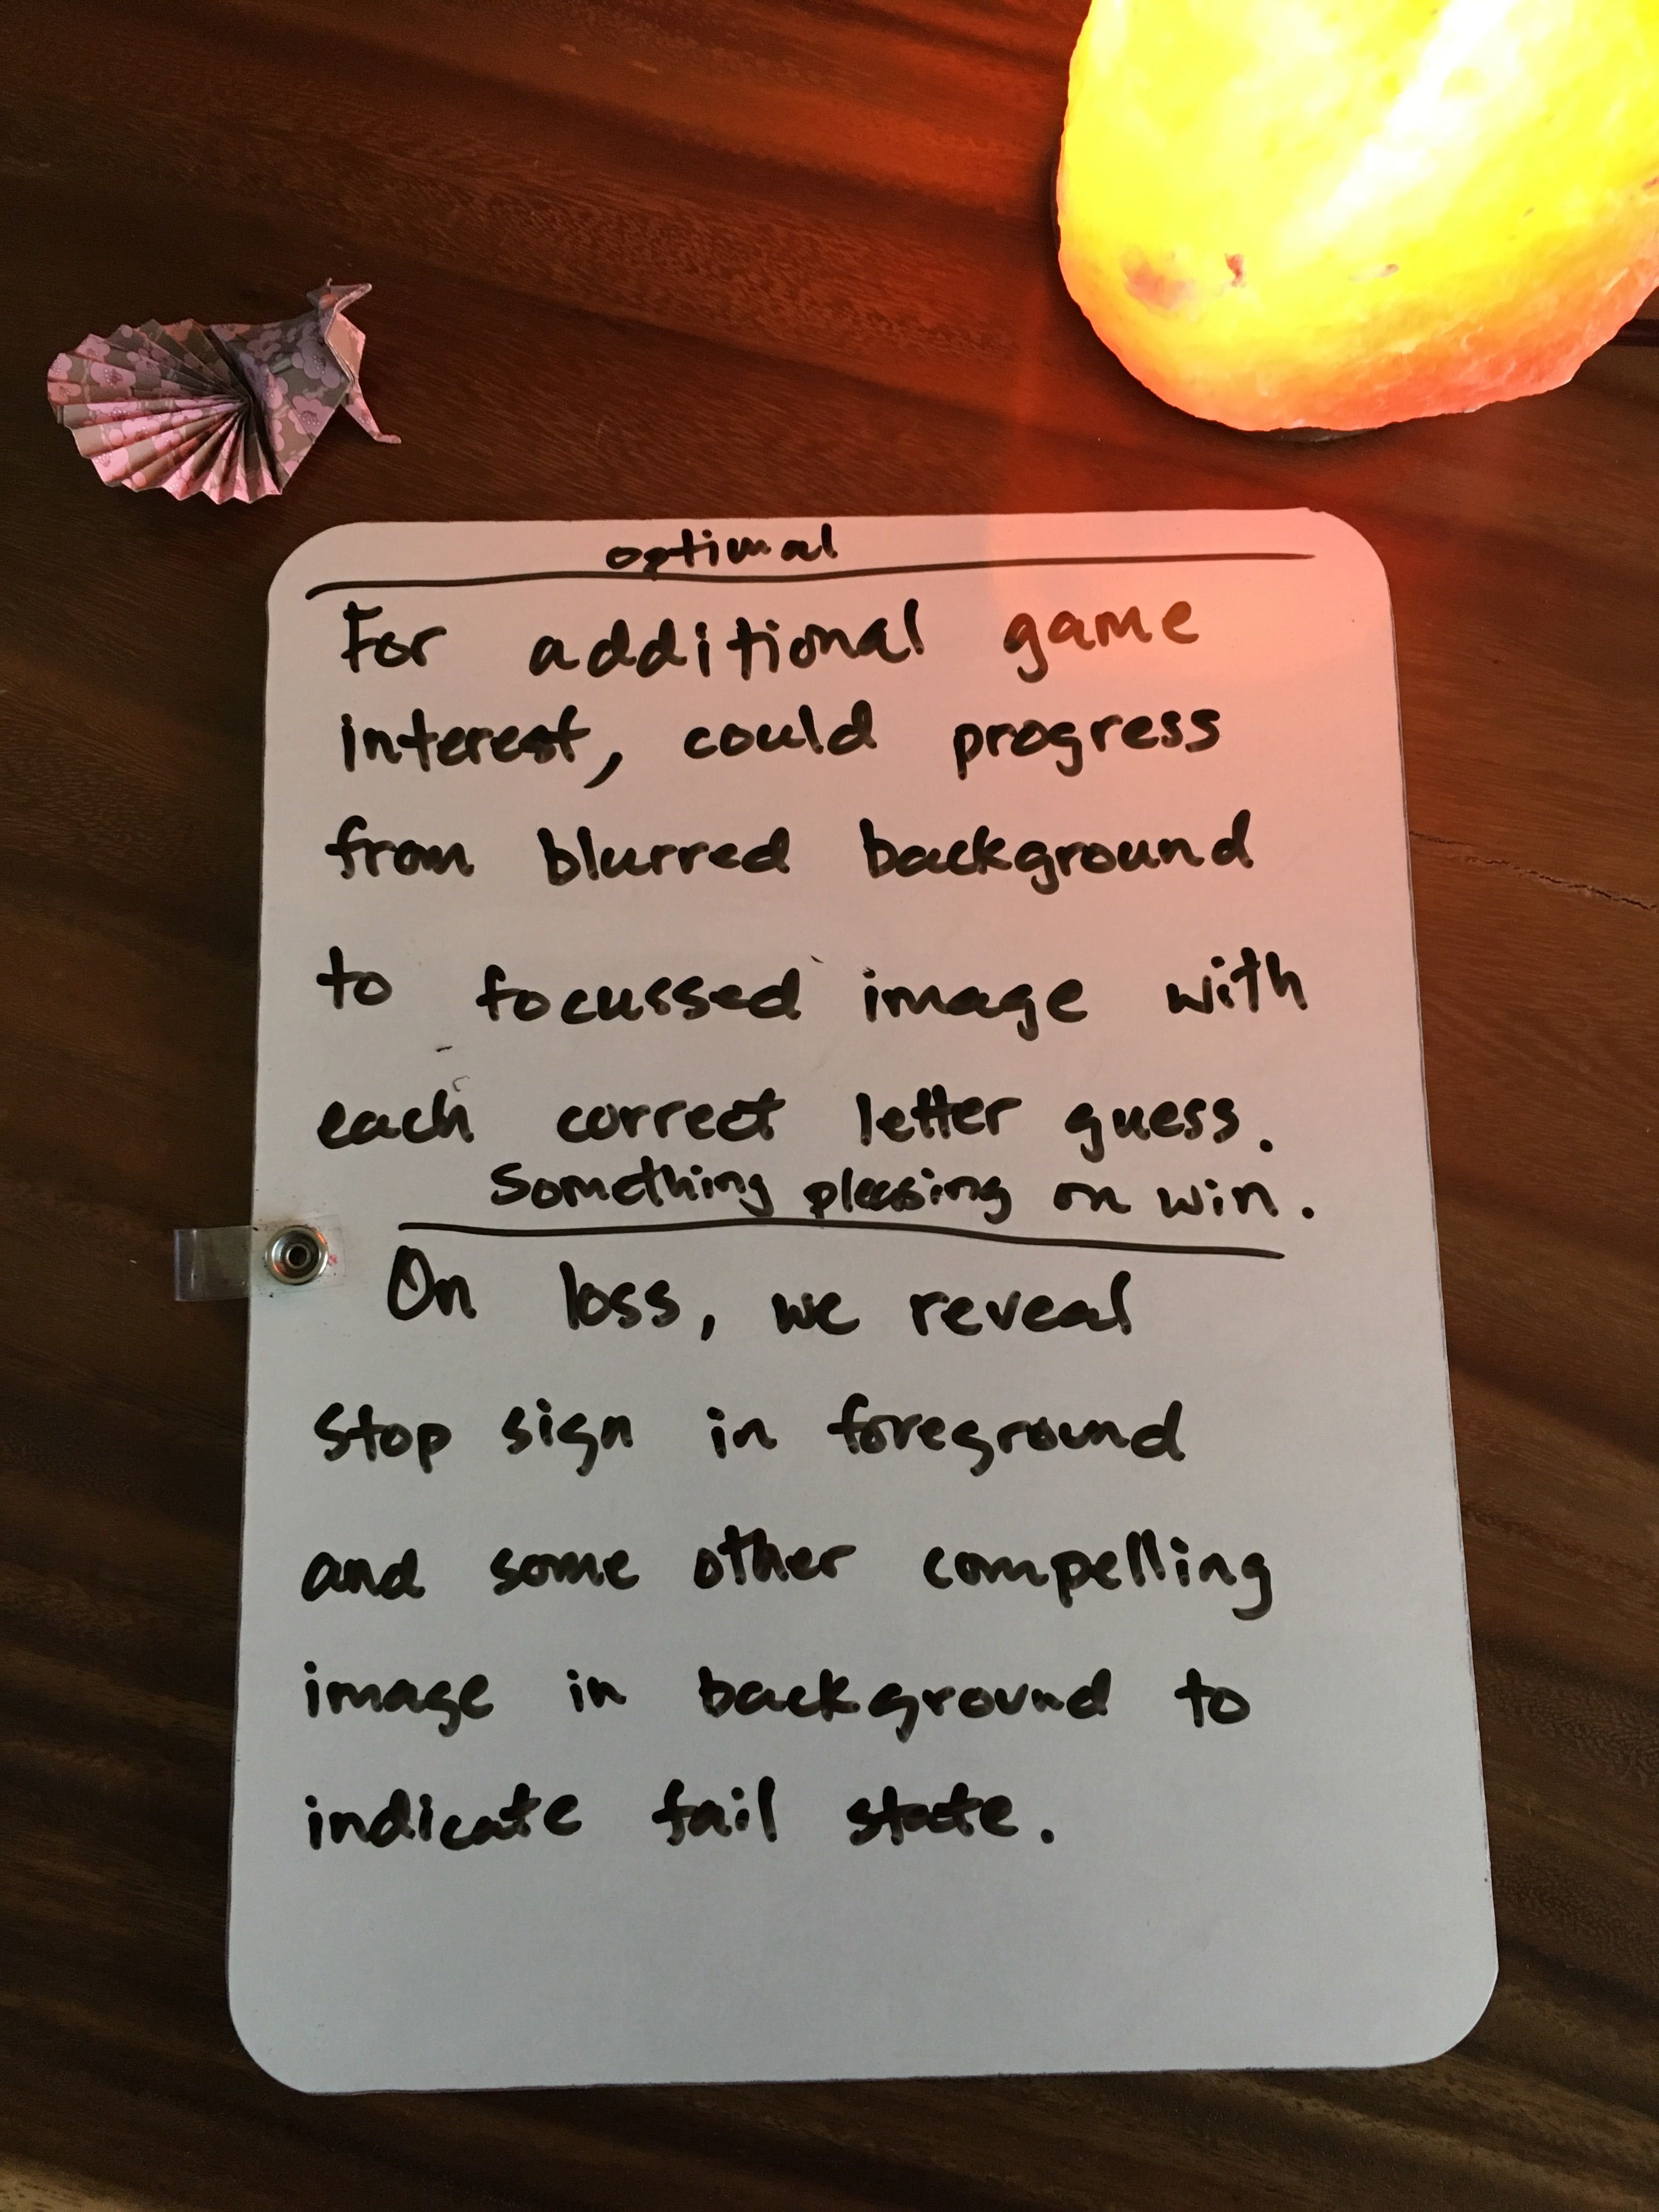 optimal
For additional game
interest, could progress
from blurred background
to focussed image with
each correct letter guess.
Something pleasing on win.
On loss, we reveal
stop sign in foreground
and some other compelling
image in background to
indicate fail state.